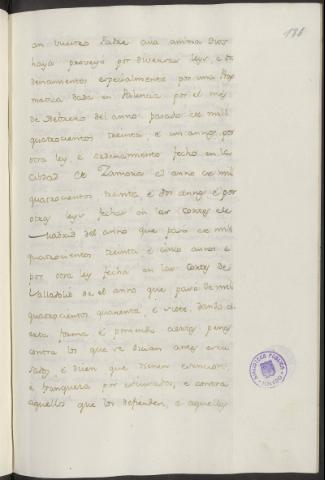 186
an vuestro Padre cuia anima Dios
haya proveyo por diversas leys, e or
denamientos especialmente por una Pre
matica dada en Palencia por el mes
de Febrero del anno pasado de mil
quatrocientos treinta e un annos por
otra ley, e ordenamiento fecho en la
cibdad de Zamora el anno de mil
quatrocientos treinta, e dos annos e por
otras leys fechas en las cortes de
Madrid del anno que paso de mil
quatrocientos treinta e cinco annos e
por otra ley fecha en las Cortes de
Valladolid de el anno que paso de mil
quatrocientos quarenta, e siete, dando cí
erta forma e poniendo ciertas penas
contra los que se dicían
e dicen que tienen esencion,
e franqueza por e contra
aquellos que los defienden, e aquellos
BIBLIOTECA PUBLICA
TOLEDO